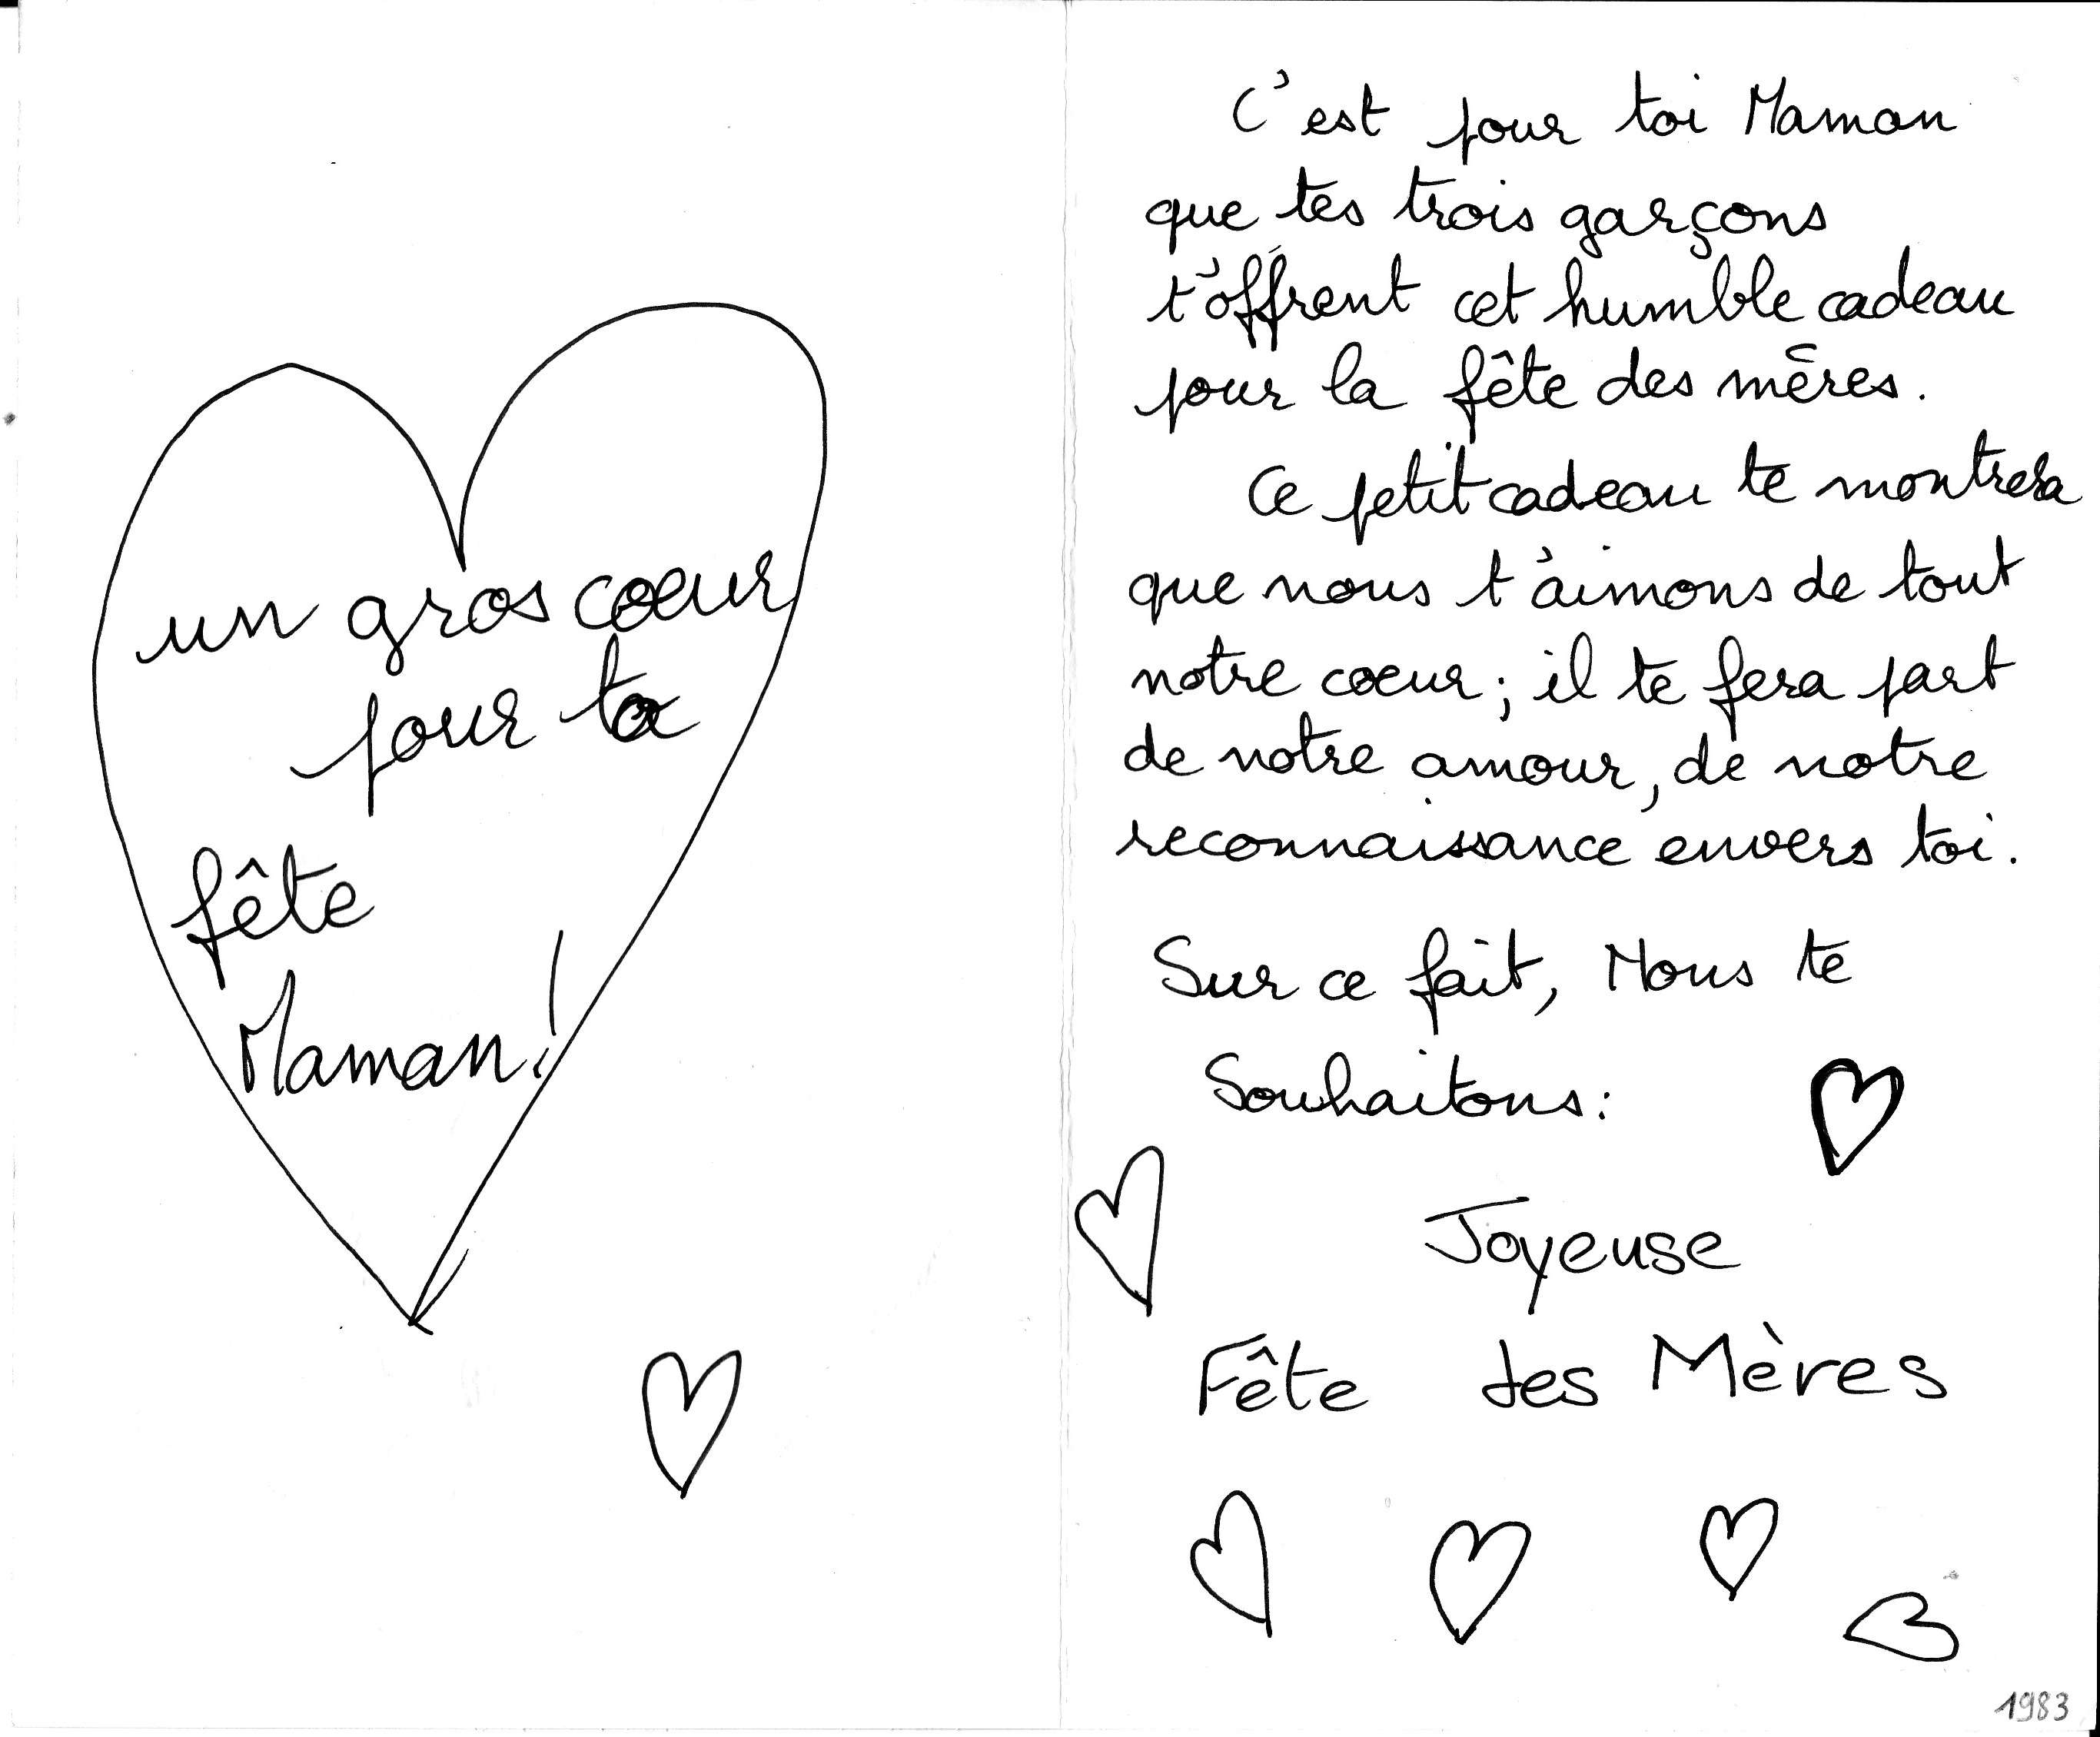 un gros coeur
pour ta
fête
Maman!
C'est pour toi Maman
que tes trois garçons
t'offrent cet humble cadeau
pour la fête des mères.
Ce petit cadeau te montrera
que nous t'aimons de tout
notre coeur; il te fera part
de notre amour, de notre
reconnaissance envers toi.
Sur ce fait, Nous te
Souhaitons:
Joyeuse
Fête des Mères
1983